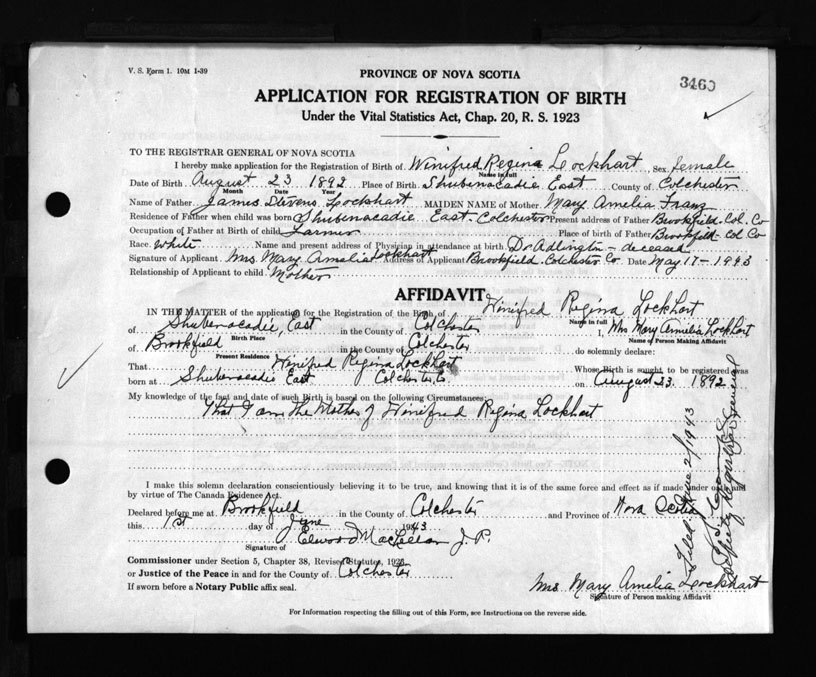 V. S. Form 1. 10M 1-39
PROVINCE OF NOVA SCOTIA
3460
APPLICATION FOR REGISTRATION OF BIRTH
Under the Vital Statistics Act, Chap. 20, R. S. 1923
TO THE REGISTRAR GENERAL OF NOVA SCOTIA
I hereby make application for the Registration of Birth of Winifred Regina Lockhart Sex female
Name in full
Date of Birth August 23 1892 Place of Birth Shubenacadie East County of Colchester
Month Date Year
Name of Father James Stevens Lockhart MAIDEN NAME of Mother Mary Amelia Franz
Residence of Father when child was born Shubenacadie East Colchester Present address of Father Brookfield Col. Co
Occupation of Father at Birth of child Farmer Place of birth of Father Brookfield Col Co
Race White Name and present address of Physician in attendance at birth Dr Adlington - deceased
Signature of Applicant Mrs Mary Amelia Lockhart Address of Applicant Brookfield Colchester Co Date May 17 - 1943
Relationship of Applicant to child Mother
AFFIDAVIT
IN THE MATTER of the application for the Registration of the Birth of Winifred Regina Lockhart
Name in full
of Shubenacadie, East in the County of Colchester I, Mrs Mary Amelia Lockhart
Birth Place Name of Person Making Affidavit
of Brookfield in the County of Colchester do solemnly declare:
Present Residence
That Winifred Regina Lockhart Whose Birth is sought to be registered was
born at Shubenacadie East Colchester Co on August 23. 1892
My knowledge of the fact and date of such Birth is based on the following Circumstances:
That I am The Mother of Winifred Regina Lockhart
I make this solemn declaration conscientiously believing it to be true, and knowing that it is of the same force and effect as if made under oath and
by virtue of The Canada Evidence Act.
Declared before me at Brookfield in the County of Colchester and Province of Nova Scotia
this 1st day of June 1943
Elwood MacLellan J. P.
Signature of
Commissioner under Section 5, Chapter 38, Revised Statutes,
or Justice of the Peace in and for the County of Colchester
If sworn before a Notary Public affix seal.
Mrs Mary Amelia Lockhart
Signature of Person making Affidavit
For Information respecting the filling out of this Form, see Instructions on the reverse side.
Filed June 2/1943
Deputy Registrar General